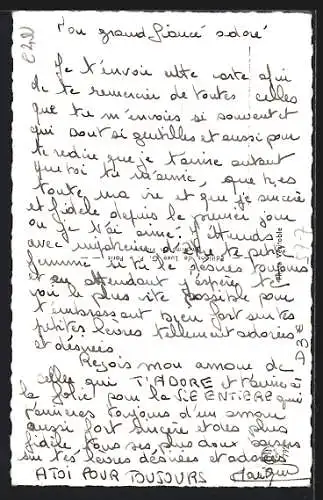 Mon grand fiancé adoré
Je t'envoie cette carte afin
de te remercier de toutes celles
que tu m'envoies si souvent et
qui sont si gentilles et aussi pour
te redire que je t'aime autant
que toi tu m'aimes, que tu es
toute ma vie et que je suis sincère
et fidèle depuis le premier jour
où je t'ai aimé. J'attends
avec impatience d'être ta petite
femme si tu le désires toujours
et en attendant j'espère te
voir le plus vite possible pour
t'embrasser bien fort sur tes
petites lèvres tellement adorées
et désirées
Reçois mon amour de
celle qui T'ADORE et t'aimera
à la folie pour la VIE ENTIERE qui
toujours d'un amour
aussi fort sincère et des plus
fidèle tous ses plus doux baisers
sur tes lèvres désirées et adorées
A TOI POUR TOUJOURS